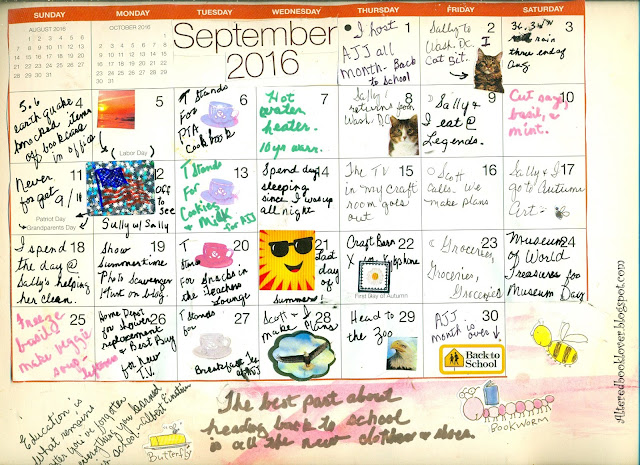 SUNDAY MONDAY TUESDAY WEDNESDAY THURSDAY FRIDAY SATURDAY
AUGUST 2016
OCTOBER 2016
September
2016
1
I host
AJJ all
month. Back
to school
2
Sally to
Wash. DC.
I
Cat sit.
3
rain
three ends of
Aug
4
5.6
earthquake
knocked items
off bookcase
in office
5
Labor Day
6
T Stands
For
PTA
Cookbook
7
Hot
water
heater.
10 yr warr.
8
Sally
returns from
Wash. DC.
9
Sally &
I eat @
Legends.
10
Cut sage,
basil, &
mint.
11
Never
forget
9/11
Patriot Day
Grandparents Day
12
Off
to see
Sully w/ Sally
13
T Stands
For
Cookies
&
Milk for AJJ
14
Spend day
sleeping
since I was up
all night
15
The TV
in my craft
room goes
out
16
Scott
calls. We
make plans
17
Sally & I
go to Autumn
Art
18
I spend
the day @
Sally's helping
her clean.
19
Show
Summertime
Photo Scavenger
Hunt on blog.
20
T
Stands
for Snacks in
the Teachers
Lounge
21
Last
day
of
Summer!
22
Craft Barn
First Day of Autumn
23
Groceries,
Groceries,
Groceries
24
Museum
of World
Treasures for
Museum Day
25
Freeze
basil &
make veggie
soup
26
Home Depot
for shower
replacement
& Best Buy
for New
T.V.
27
T
Stands for
Breakfast Tea
28
Scott &
make Plans
29
Head to
the Zoo
30
AJJ
month is over
Back to
School
Education is
what remains
after you've forgotten
everything you learned
in school. -Albert Einstein
BUTTERFLY
The best part about
heading back to school
is all the new clothes & shoes.
BOOKWORM
Alteredbooklover.blogspot.com